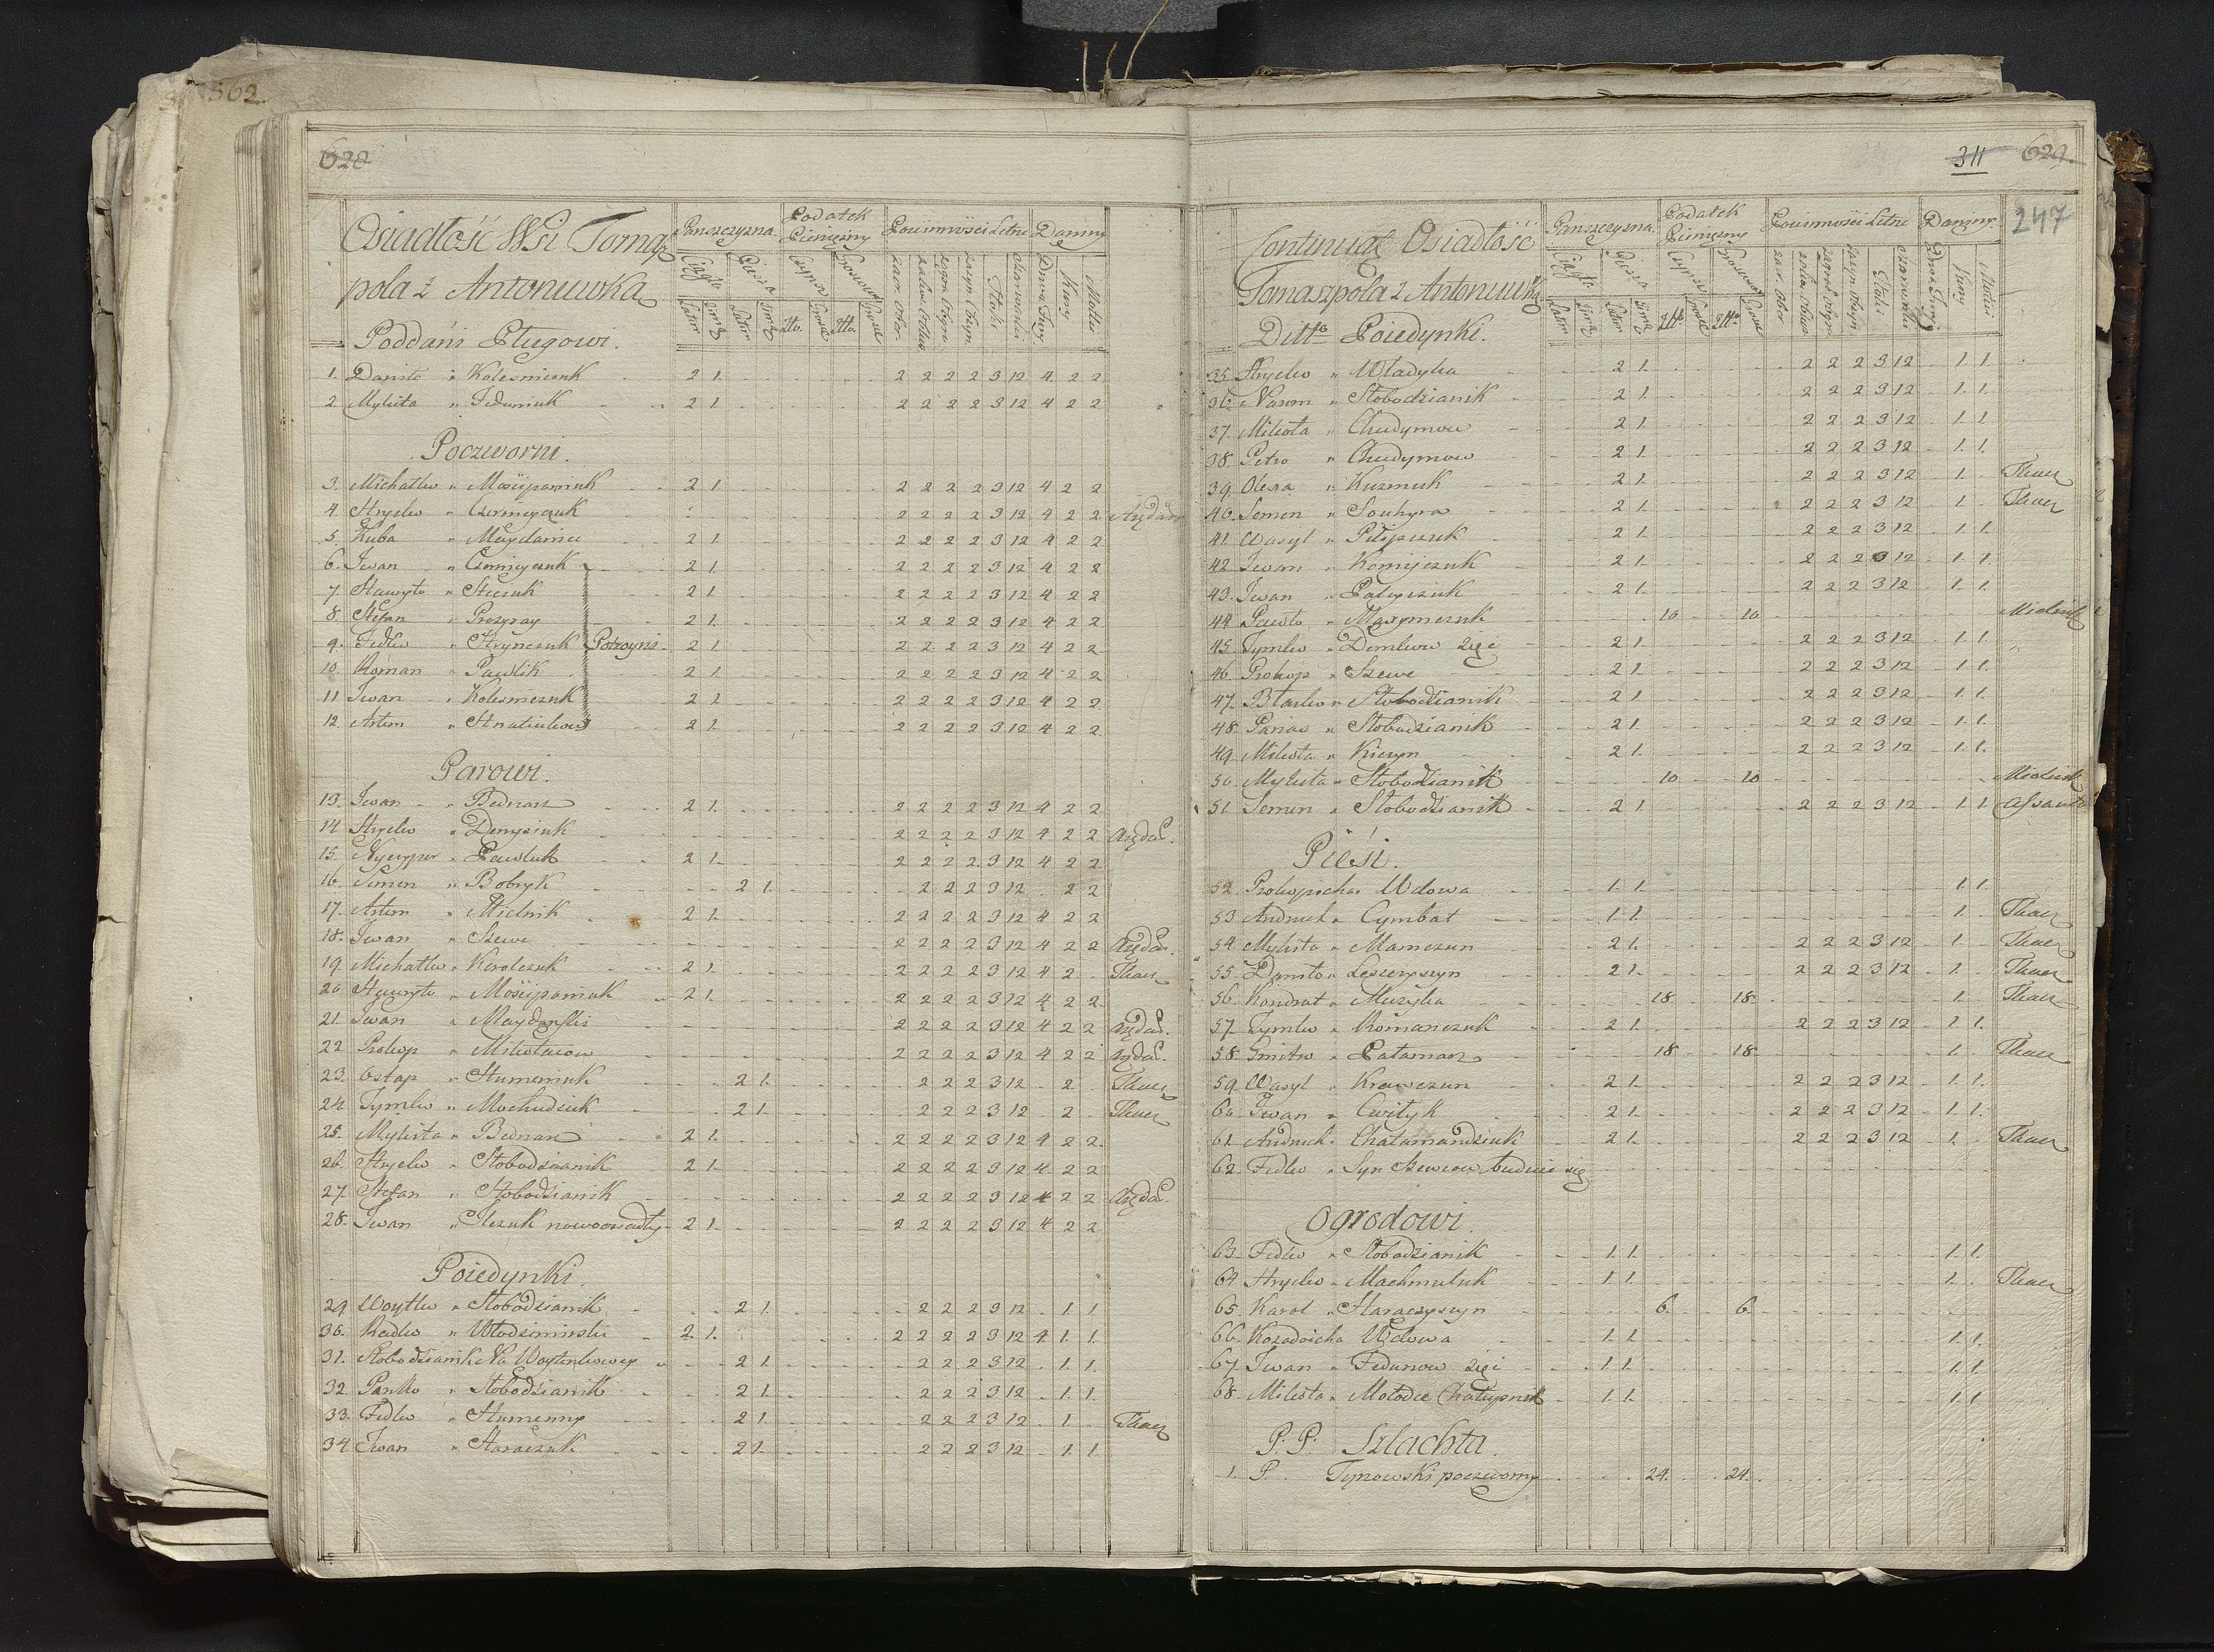 562
628
Osiadłość Wsi Tomasz
pola z Antoniuwką
Pańszczyzna
Podatek Pieniężny
Powinności Letne
Daniny
Poddani Pługowi.
1. Daniło " Kolesniczuk 2 1. 2 2 2 2 3 12 4 2 2
2. Mykita " Fedoruniuk 2 1 2 2 2 2 3 12 4 2 2
Poczworni.
3. Michałko " Mosiipaniuk 2 1 2 2 2 2 3 12 4 2 2
4. Hryćko " Czerniyczuk 2 2 2 2 3 12 4 2 2
5. Kuba " Maydanicz 2 1 2 2 2 2 3 12 4 2 2
6. Iwan " Czerniyczuk 2 1 2 2 2 2 3 12 4 2 2
7. Hawryło " Steciuk 2 1 2 2 2 2 3 12 4 2 2
8. Stefan " Prozyray 2 1. 2 2 2 2 3 12 4 2 2
9. Fedko " Hrynczuk Potroyni 2 1 2 2 2 2 3 12 4 2 2
10. Roman " Pawlik 2 1. 2 2 2 2 3 12 4 2 2
11 Iwan " Kolesniczuk 2 1 2 2 2 2 3 12 4 2 2
12. Artem 2 1. 2 2 2 2 3 12 4 2 2
Parowi.
13. Iwan " Bednarz 2 1. 2 2 2 2 3 12 4 2 2
14 Hryćko " Denysiuk 2 2 2 2 3 12 4 2 2
15. Nyczypor " Pawluk 2 1. 2 2 2 2 3 12 4 2 2
16. Semen " Bobryk 2 1. 2 2 2 3 12 2 2
17. Artem " Mielnik 2 1. 2 2 2 2 3 12 4 2 2
18. Iwan " Szewc 2 2 2 2 3 12 4 2 2
19. Michałko " Korolczuk 2 1. 2 2 2 2 3 12 4 2 Tkacz
20 Hawryło " Mosiipaniuk 2 1. 2 2 2 2 3 12 4 2 2
21. Iwan " Maydański 2 2 2 2 3 12 4 2 2
22 Prokop " Mikołaiow 2 2 2 2 3 12 4 2 2
23. Ostap " Humeniuk 2 1. 2 2 2 3 12 2 Tkacz
24 Tymko " Mochuduk 2 1. 2 2 2 3 12 2 Tkacz
25. Mykita " Bednarz 2 1. 2 2 2 2 3 12 4 2 2
26. Hryćko " Słobodzianik 2 1. 2 2 2 2 3 12 4 2 2
27 Stefan " Słobodzianik 2 2 2 2 3 12 4 2 2
28. Iwan " nowoosiadły 2 1. 2 2 2 2 3 12 4 2 2
Poiedynki.
29 Woytko " Słobodzianik 2 1. 2 2 2 3 12 1 1
30. Radko " Włodzimirski 2 1. 2 2 2 2 3 12 4 1. 1.
31. Słobodzianik Na Woytenkowey 2 1. 2 2 2 3 12 1. 1.
32. Panko " Słobodzianik 2 1. 2 2 2 3 12 1. 1.
33. Fedko " Humenny 2 1. 2 2 2 3 12 1. Tkacz
34 Iwan " Haraczuk 2 1. 2 2 2 3 12 1. 1.
311 629.
247
Continuat Osiadłość
Tomaszpola z Antoniuwką
Pańszczyzna.
Podatek Pieniężny
Powinności Letne
Daniny.
Ditto Poiedynki.
35. Hryćko " Władyka 2 1. 2 2 2 3 12 1. 1.
36. Naum " Słobodzianik 2 1. 2 2 2 3 12 1. 1.
37. Mikoła " Chudymow 2 1. 2 2 2 3 12 1. 1
38. Petro " Chudymow 2 1. 2 2 2 3 12 1. 1.
39. Olexa " Kuzmuk 2 1. 2 2 2 3 12 1. Tkacz
40. Semen " Souhyra 2 1. 2 2 2 3 12 1. Tkacz
41. Wasyl " Pilipczuk 2 1. 2 2 2 3 12 1. 1.
42 Iwan " Korniyczuk 2 1. 2 2 2 3 12 1. 1.
43. Iwan " Palyczuk 2 1. 2 2 2 3 12 1. 1.
44 Pawło " Maxymczuk 10. 10. Mielnik
45. Tymko " Demkow Zięć 2 1. 2 2 2 3 12 1. 1.
46. Prokop " Szewc 2 1. 2 2 2 3 12 1. 1.
47. Błażko " Słobodzianik 2 1. 2 2 2 3 12 1. 1.
48. Panas " Słobodzianik 2 1. 2 2 2 3 12 1. 1.
49. Mikoła " Kiczyn 2 1. 2 2 2 3 12 1. 1.
50. Mykita " Słobodzianik 10 10 Mielnik
51. Semen " Słobodzianik 2 1 2 2 2 3 12 1. 1 Assauła
Piesi.
52. Prokopicha Wdowa 1. 1. 1. 1.
53. Andruch " Cymbał 1. 1. 1. Tkacz
54. Mykita " Mamczur 2 1. 2 2 2 3 12 1. Tkacz
55. Daniło " Leszczyszyn 2 1. 2 2 2 3 12 1. Tkacz
56. Kondrat " Muzyka 18. 18. 1. Tkacz
57. Tymko " Romanczuk 2 1. 2 2 2 3 12 1. 1.
58. Dmitro " Patamarz 18. 18. 1. Tkacz
59. Wasyl " Krawczun 2 1. 2 2 2 3 12 1. 1.
60. Iwan " Cwityk 2 1. 2 2 2 3 12 1. 1.
61. Andruch " Chatamandziuk 2 1. 2 2 2 3 12 1. Tkacz
62. Fedko " Syn Szewcow buduie się
Ogrodowi.
63. Fedko " Słobodzianik 1. 1. 1. 1.
64 Hryćko " Machmuluk 1. 1. 1. Tkacz
65. Karol " Haraczyszyn 6. 6.
66. Kozadoicha Wdowa 1. 1. 1. 1.
67. Iwan " Fedunow Zięć 1. 1. 1. 1.
68. Mikoła " Mołodec Chałupnik 1. 1. 1. 1.
P. P. Szlachta.
1. P. Tynowski poczworny 24. 24.